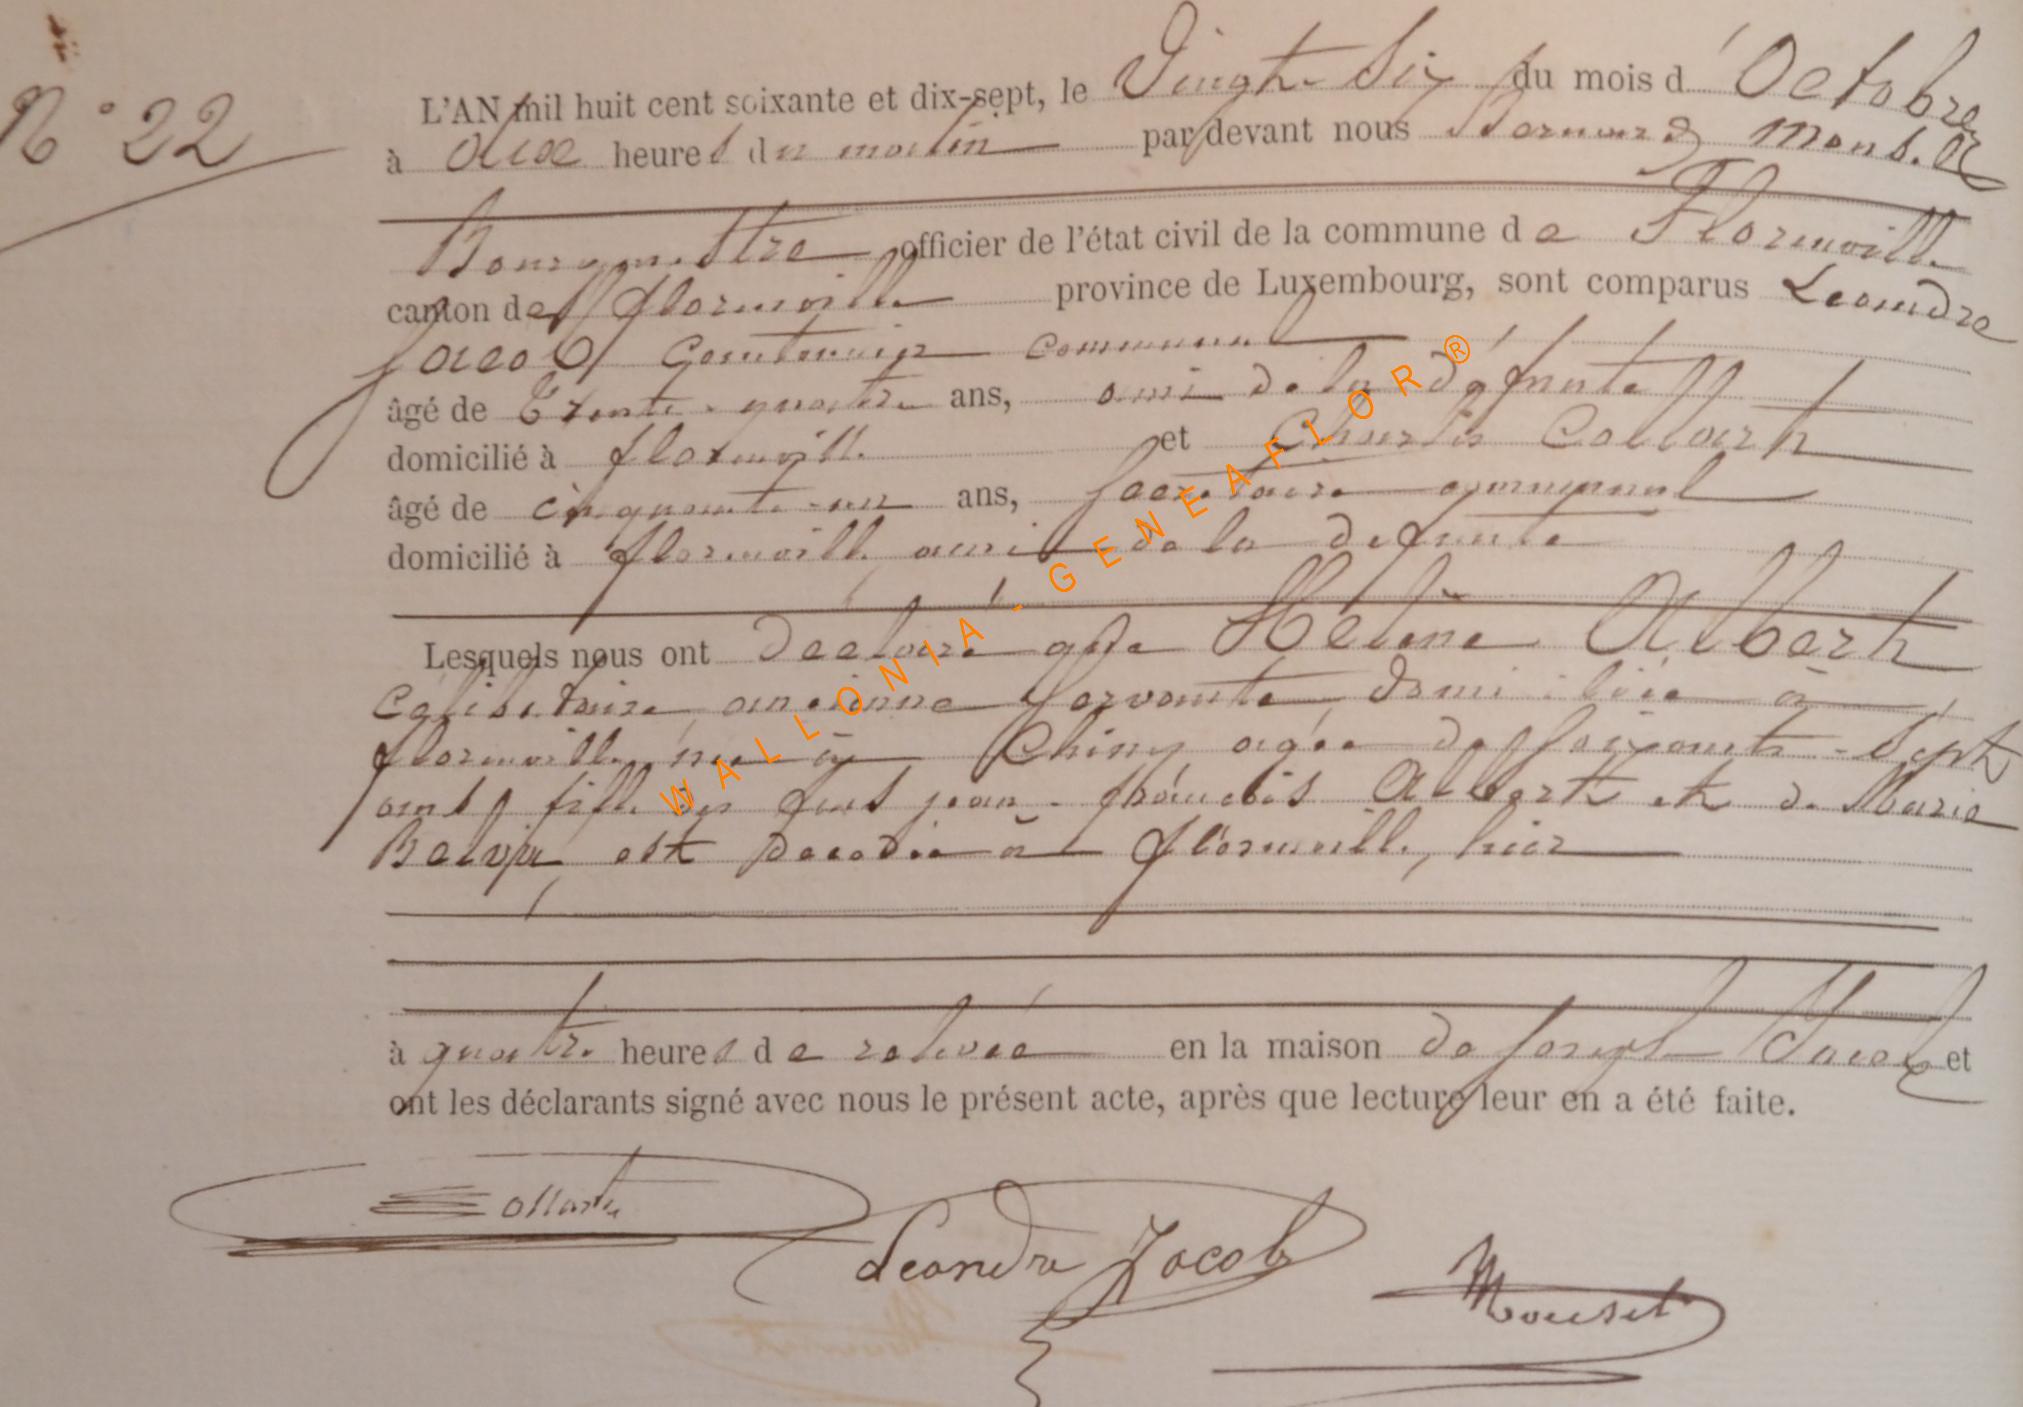 N° 22
L'AN mil huit cent soixante et dix-sept, le Vingt-Six du mois d' Octobre
à dix heures du matin par devant nous Bernard
Bourgmestre officier de l'état civil de la commune de Florenville
canton de florenville province de Luxembourg, sont comparus Leandre
Jacob Cantonnier communal
âgé de Trente-quatre ans, ami de la défunte
domicilié à florenville et Charles Collart
âgé de cinquante-un ans, Secrétaire communal
domicilié à florenville, ami de la defunte
Lesquels nous ont déclaré que Hélène Albert
Célibataire, ancienne servante, domiciliée à
florenville, née à Chiny agée de soixante-Sept
ans, fille des feus jean-françois Albert et de Marie
est decedée à florenville, hier
à quatre heures de relevée en la maison de Joseph Jacob et
ont les déclarants signé avec nous le présent acte, après que lecture leur en a été faite.
Collart
Leandre Jacob
Mouset
WALLONIA - GENEAFLOR®